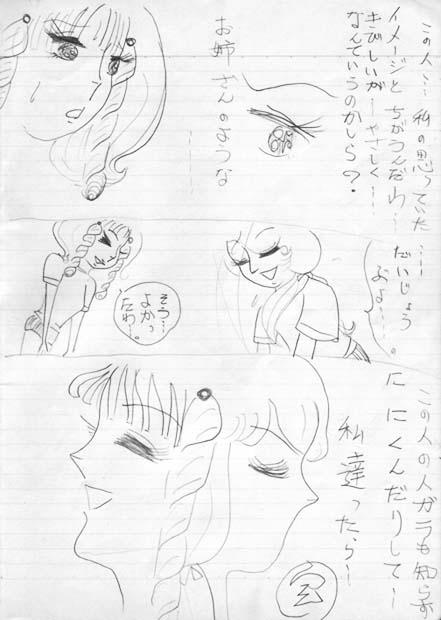 この人…私の思っていた
イメージとちがうんだわ…
きびしいが…やさしく…
なんていうのかしら？
お姉さんのような
……
……だいじょう
ぶよ…。
そう…
よかっ
たわ…。
この人の人ガラも知らず
ににくんだりして…
私達ったら…